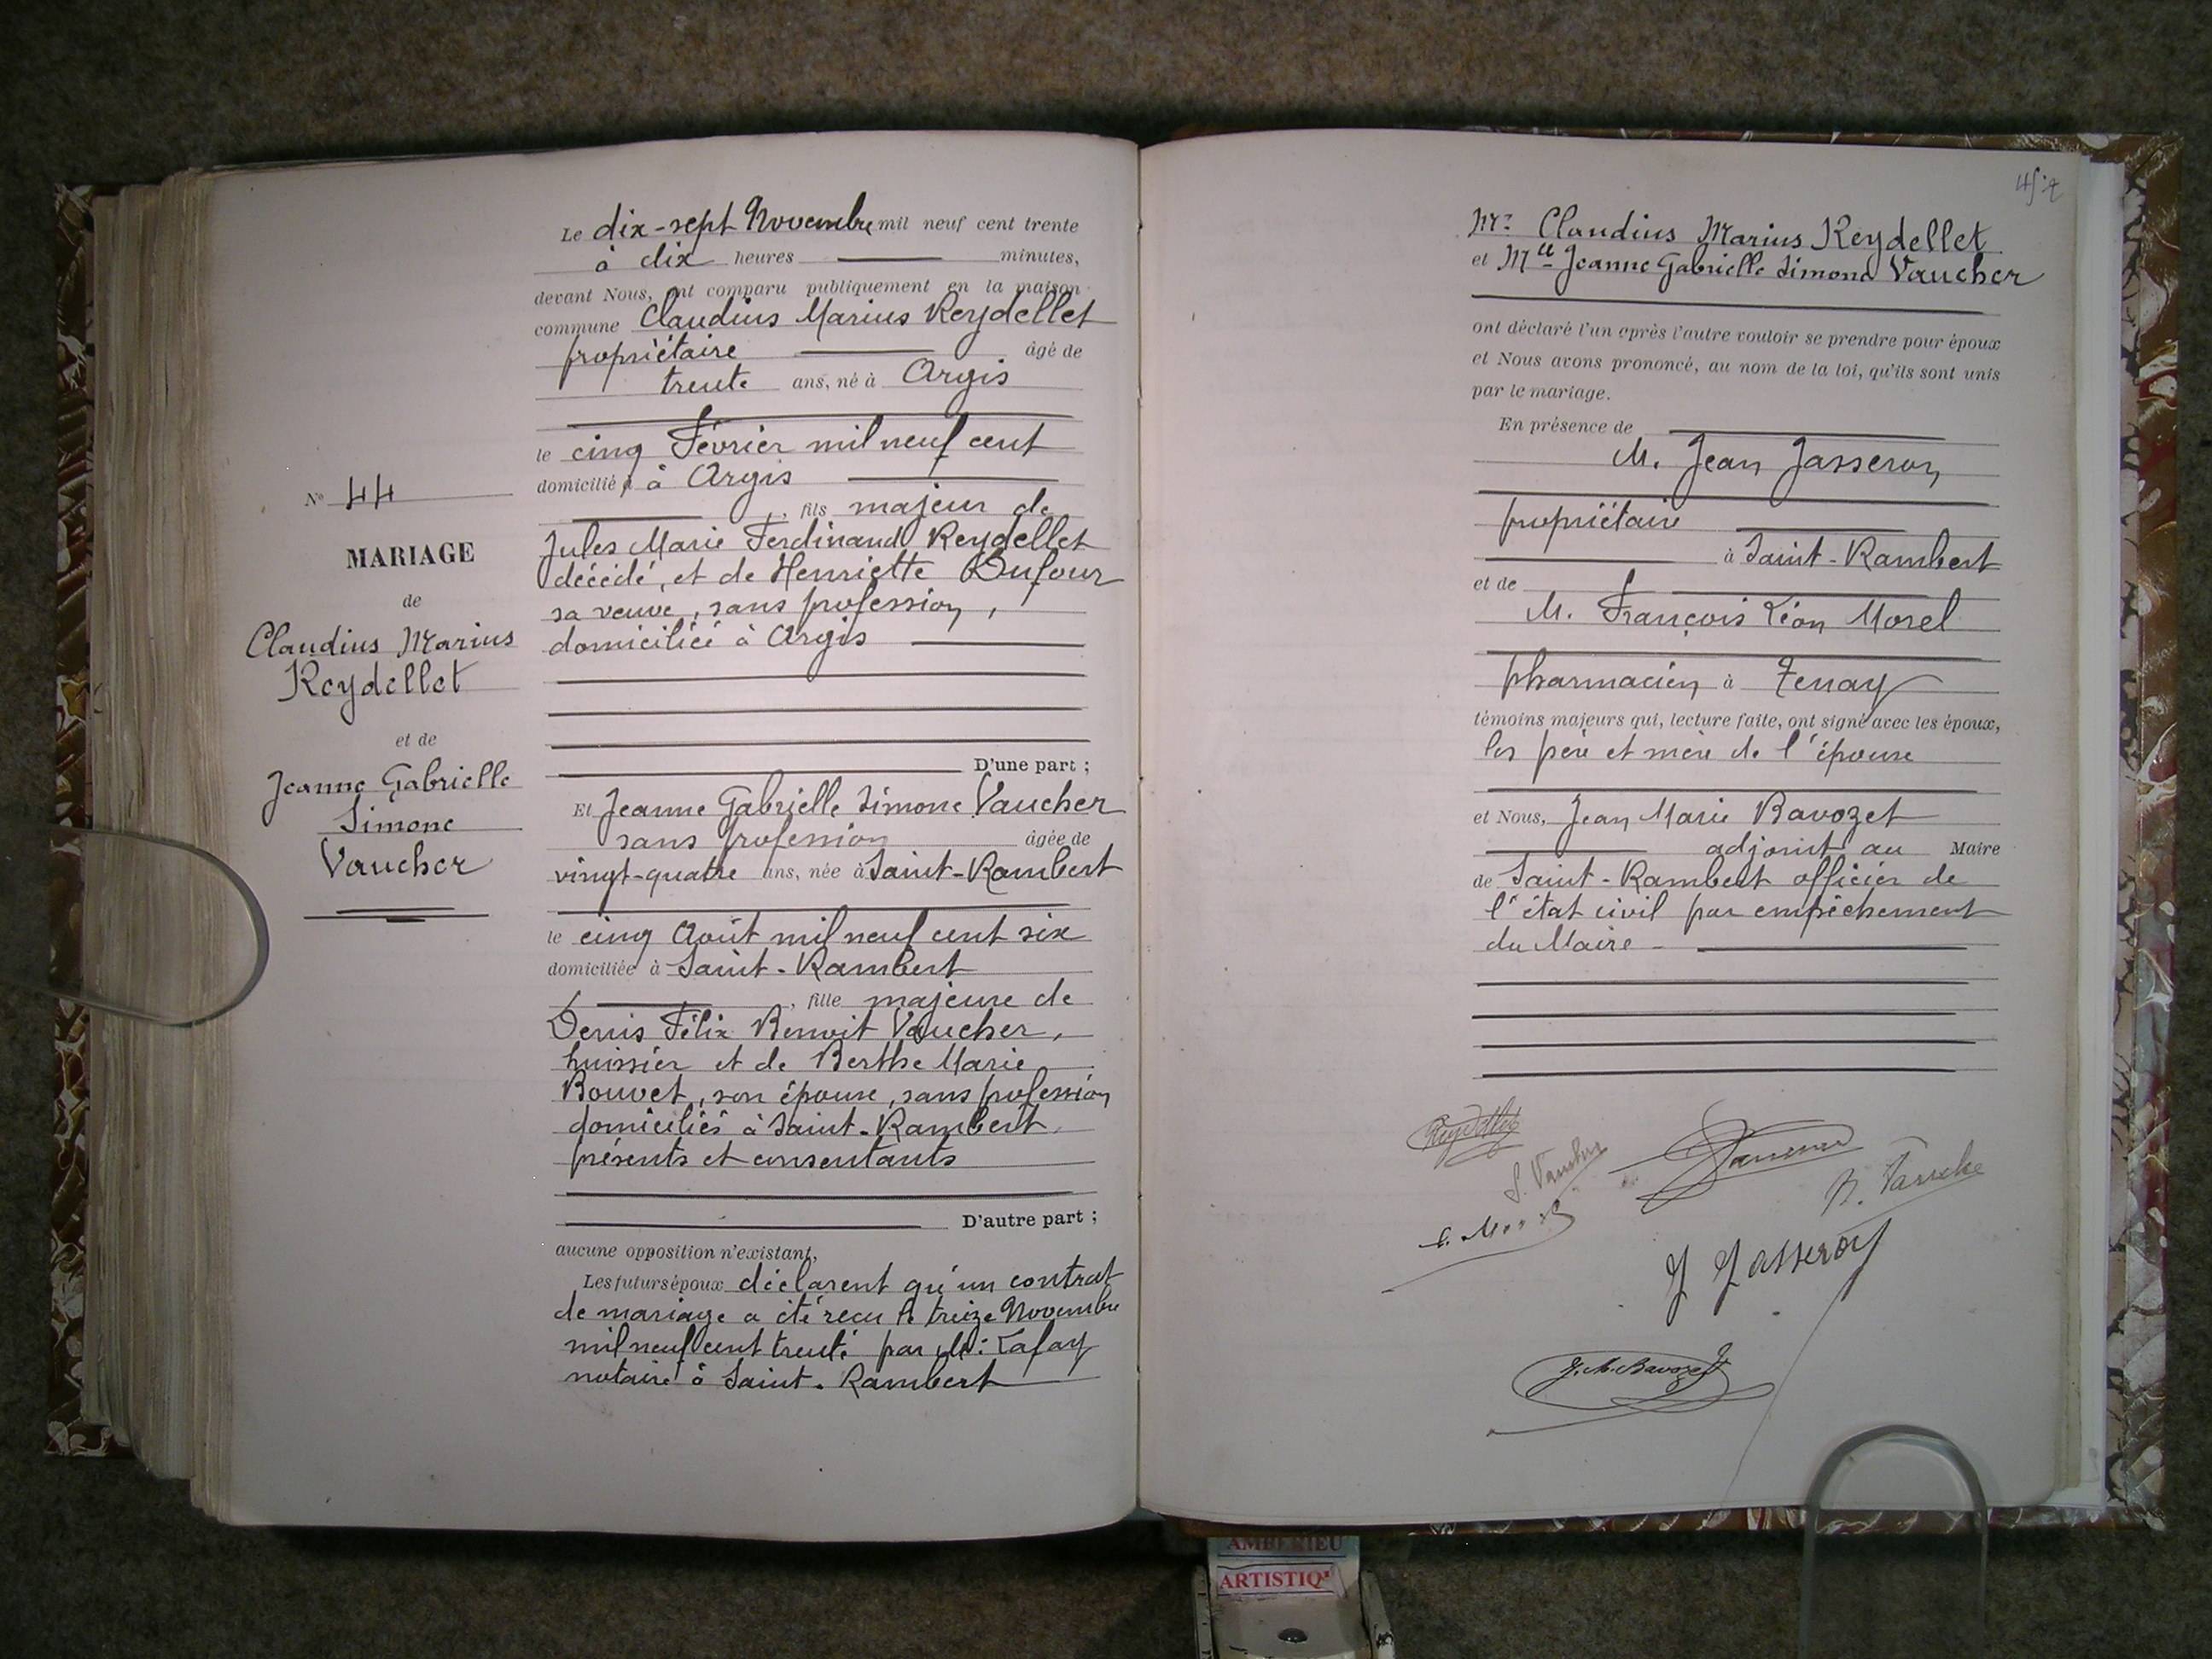 Nº 44
MARIAGE
de
Claudius Marius
Reydellet
et de
Jeanne Gabrielle
Simone
Vaucher
Le dix-sept Novembre mil neuf cent trente
à dix heures minutes,
devant Nous, ont comparu publiquement en la maison
commune Claudius Marius Reydellet
propriétaire âgé de
trente ans, né à Argis
le cinq Février mil neuf cent
domicilié à Argis
, fils majeur de
Jules Marie Ferdinand Reydellet
décédé, et de Henriette Dufour
sa veuve, sans profession,
domiciliée à Argis
D'une part ;
Et Jeanne Gabrielle Simone Vaucher
sans profession âgée de
vingt-quatre ans, née à Saint-Rambert
le cinq Août mil neuf cent six
domiciliée à Saint-Rambert
, fille majeure de
Denis Félix Benoit Vaucher,
huissier et de Berthe Marie
Bouvet, son épouse, sans profession
domiciliés à Saint-Rambert,
présents et consentants
D'autre part ;
aucune opposition n'existant,
Les futurs époux déclarent qu'un contrat
de mariage a été reçu le treize Novembre
mil neuf cent trente par Me: Lafay
notaire à Saint-Rambert
Mr Claudius Marius Reydellet
et Mlle Jeanne Gabrielle Simone Vaucher
ont déclaré l'un après l'autre vouloir se prendre pour époux
et Nous avons prononcé, au nom de la loi, qu'ils sont unis
par le mariage.
En présence de
M. Jean Jasseron
propriétaire
à Saint-Rambert
et de
M. François Léon Morel
pharmacien à Tenay
témoins majeurs qui, lecture faite, ont signé avec les époux,
les père et mère de l'épouse
et Nous, Jean Marie Bavozet
adjoint au Maire
de Saint-Rambert officier de
l'état civil par empêchement
du Maire
Reydellet
S. Vaucher
B. Vaucher
J Jasseron
J. M. Bavozet
AMBERIEU
ARTISTIQ